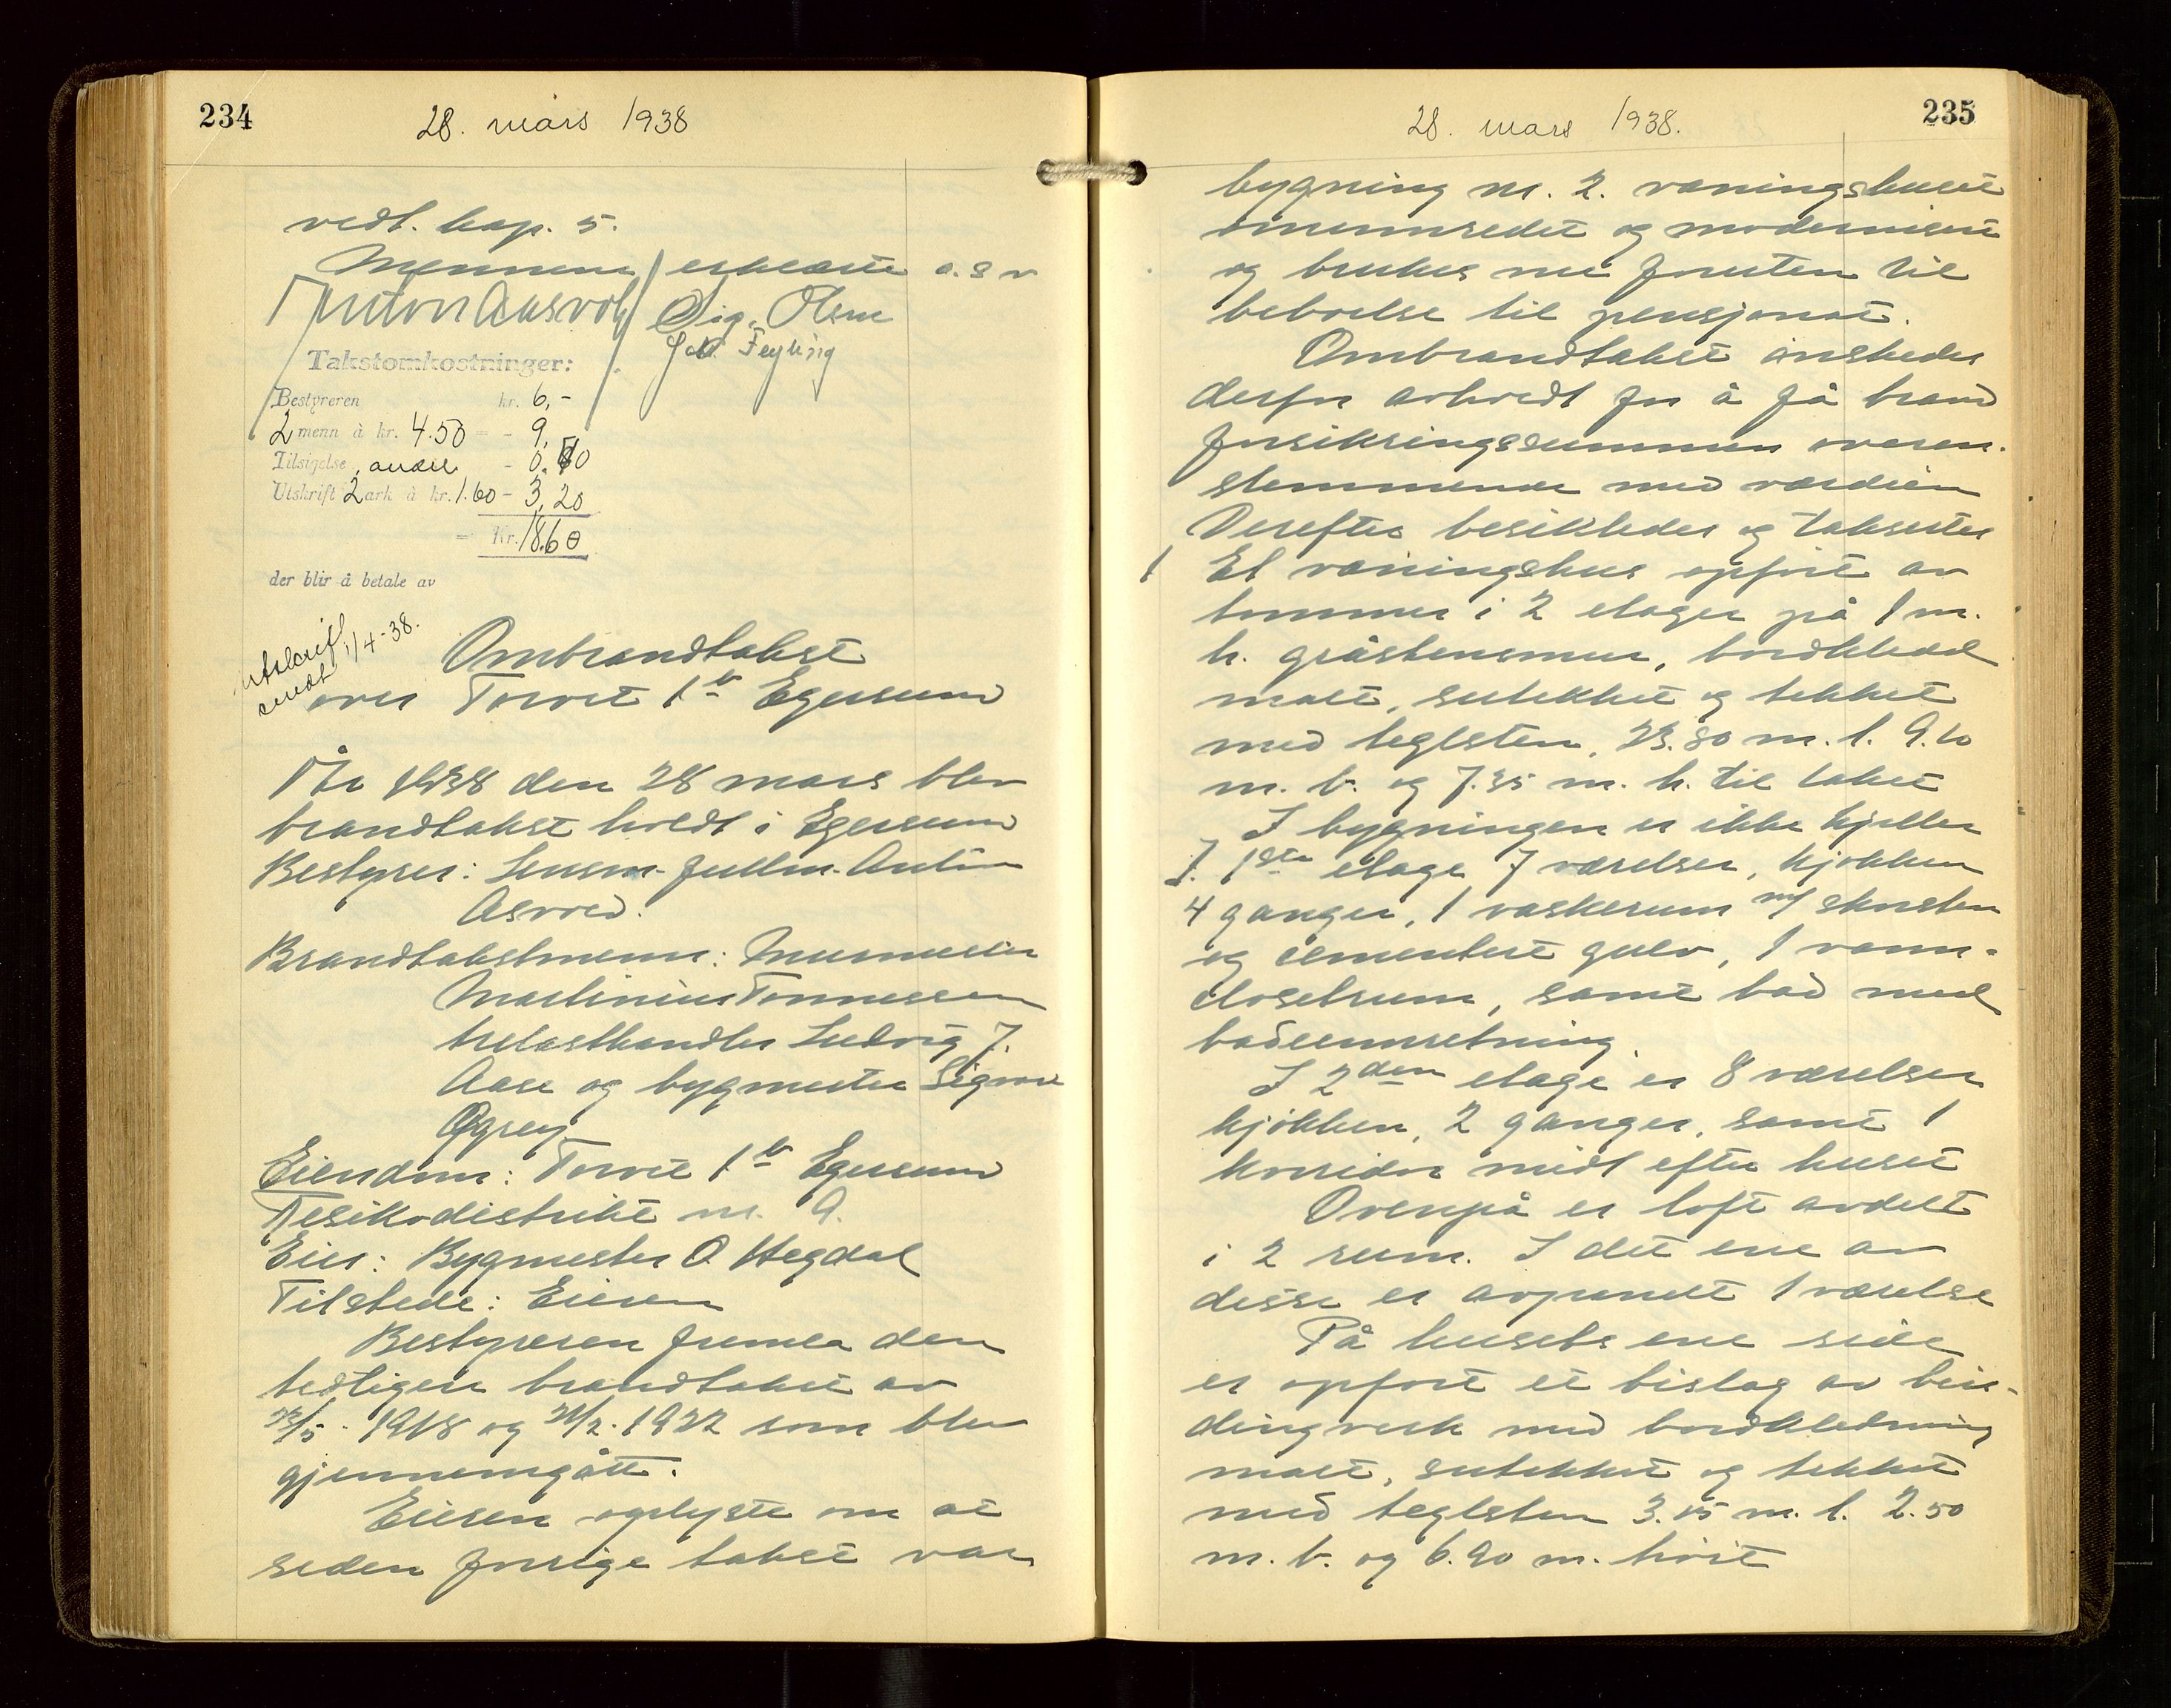 234
28. mars 1938
vedt. kap. 5.
Mennene erklærte o. s v
Anton Aasvold Sig. Olsen
Feyling
Takstomkostninger:
Bestyreren kr. 6,-
2 menn à kr. 4.50 = - 9,
Tilsigelse, andel - 0.40
Utskrift 2 ark à kr. 1.60 - 3,20
= Kr. 18.60
der blir å betale av
Utskrift
sendt 1/4-38.
Ombrandtakst
over Torvet 1b Egersund
År 1938 den 28 mars blev
brandtakst holdt i Egersund
Bestyrer: Lensm. fullm. Anton
Brandtakstmenn: Murmester
Martinius Tønnessen
trelasthandler Ludvig J.
Aase og bygmester Sigvard
Øgrey
Eiendom: Torvet 1b Egersund
Risikodistrikt nr. 9.
Eier: Bygmester O. Hegdal
Tilstede: Eieren
Bestyreren fremla den
tidligere brandtakst av
/5. 1918 og /2. 1922 som blev
gjennemgått.
Eieren oplyste om at
siden forrige takst var
28. mars 1938.
235
bygning nr. 2. våningshuset
ominnredet og modernisert
og brukes nu foruten til
beboelse til pensjonat.
Ombrandtakst ønskedes
derfor avholdt for å få brand
forsikringssummen overen-
stemmende med værdien
Derefter besiktedes og takserter
1 Et våningshus opført av
tømmer i 2 etager på 1 m.
h. gråstensmur, bordkledd
malt, sutekket og tekket
med teglsten, 23.80 m. l. 9.10
m. b. og 7.35 m. h. til taket
I bygningen er ikke kjeller
I 1ste etage 7 værelser, kjøkken
4 ganger, 1 vaskerum m/ skorsten
og cementert gulv, 1 vann-
closetrum, samt bad med
badeinnretning.
I 2den etage er 8 værelser
kjøkken, 2 ganger, samt 1
korridor midt efter huset
Ovenpå er loft avdelt
i 2 rum. I det ene av
disse er avpanelt 1 værelse
På husets ene side
er opført et bislag av bin-
dingverk med bordkledning
malt, sutekket og tekket
med teglsten 3.15 m. l. 2.50
m. b. og 6.20 m. høit